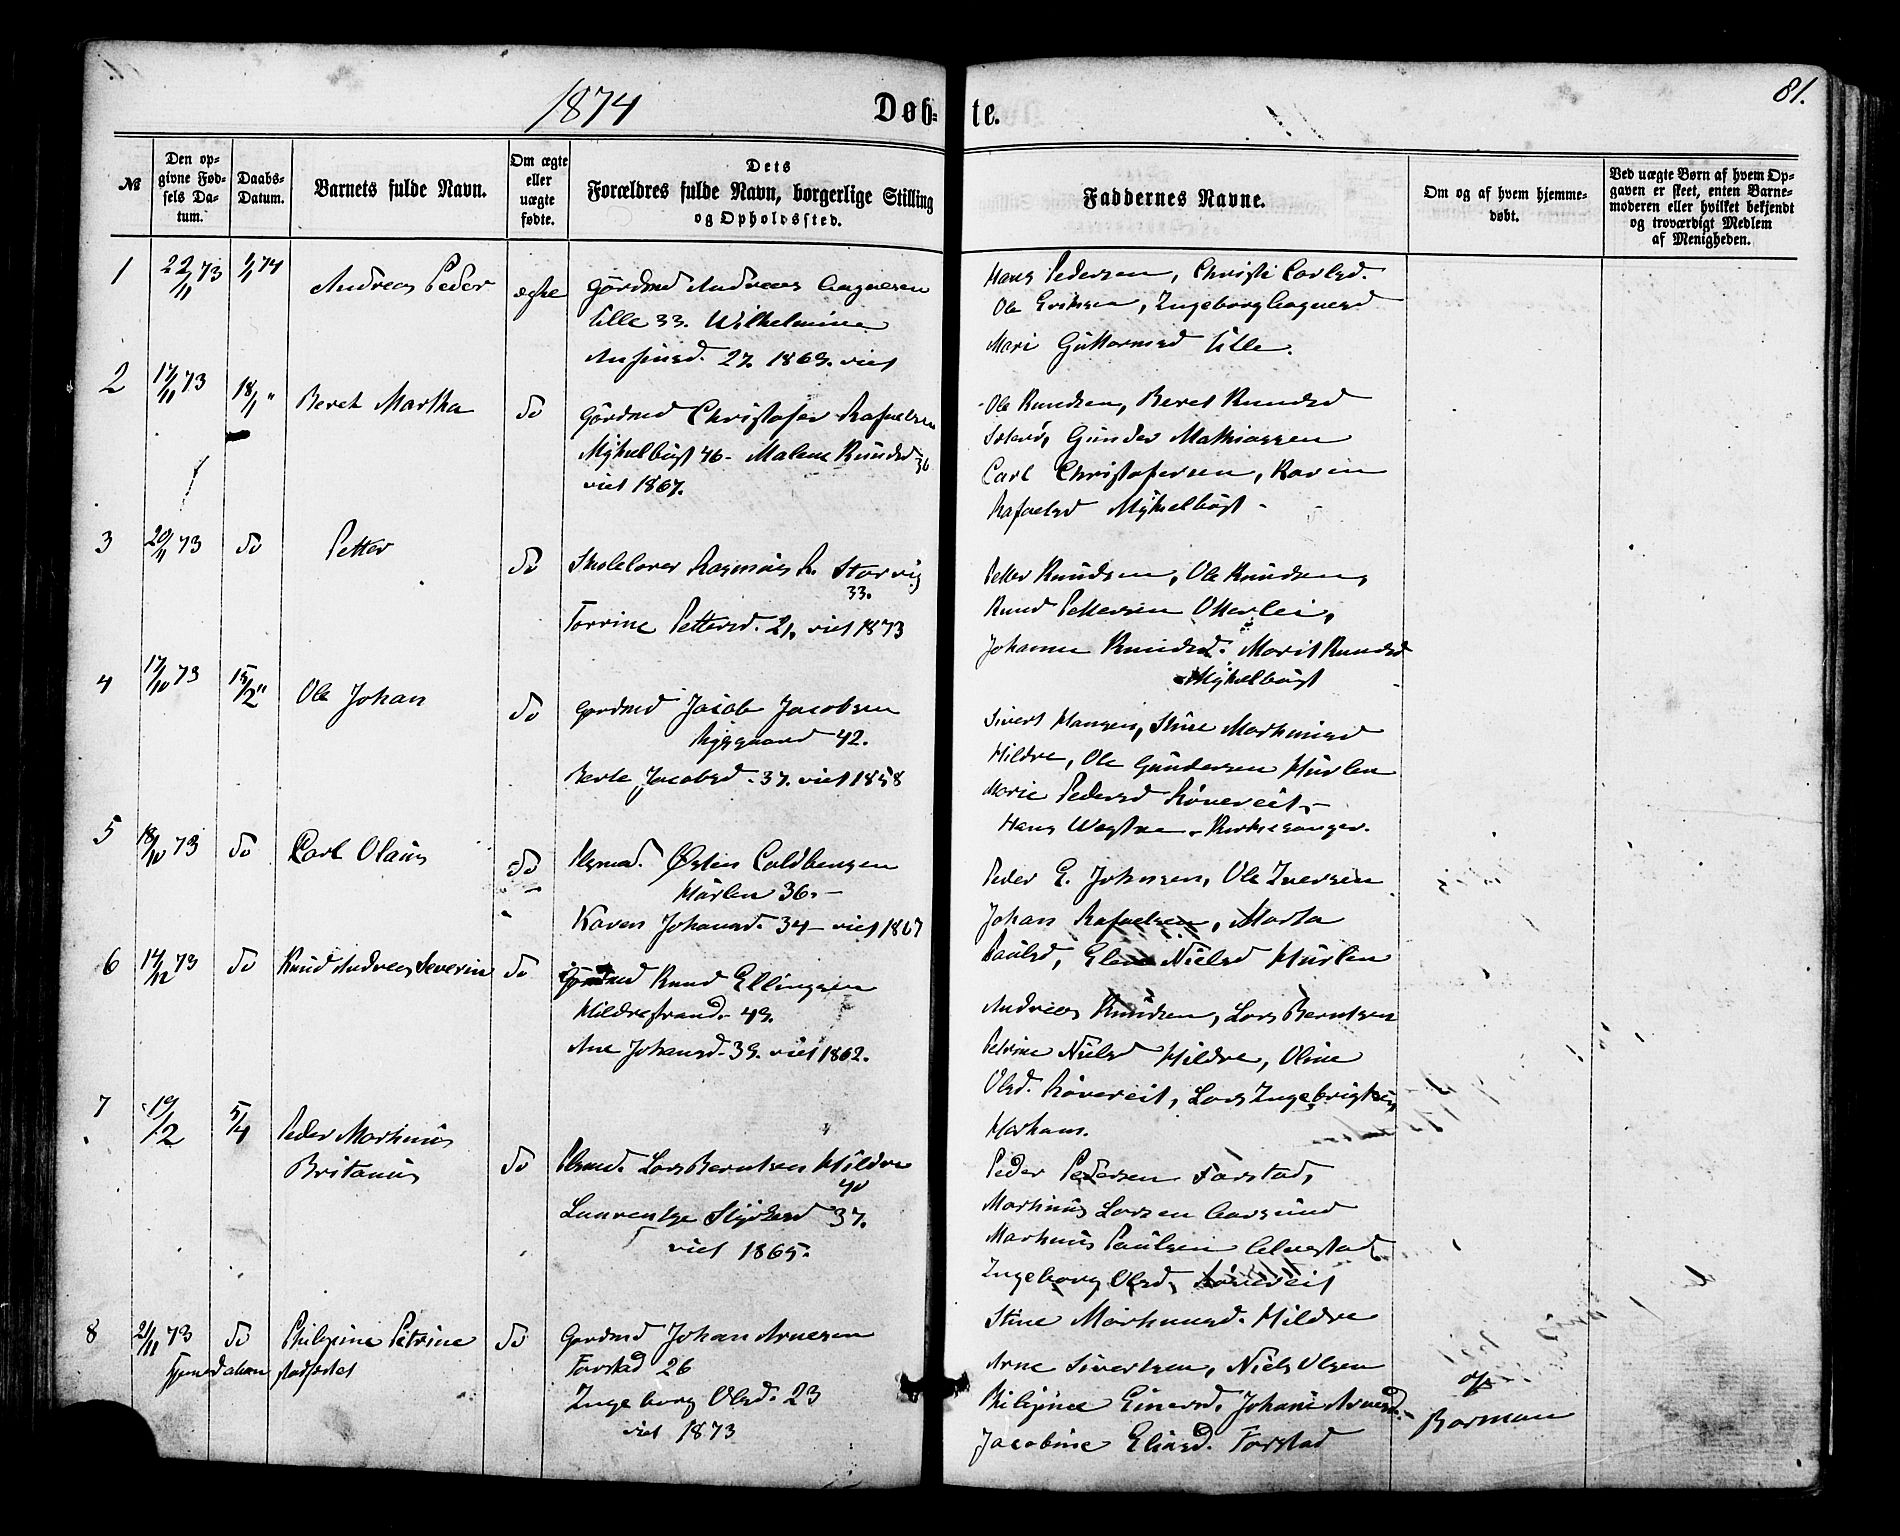 1874 Døb- te. 81.
№
Den op-
givne Fød-
sels Da-
tum.
Daabs-
Datum.
Barnets fulde Navn.
Om ægte
eller
uægte
fødte.
Dets
Forældres fulde Navn, borgerlige Stilling
og Opholdssted.
Faddernes Navne.
Om og af hvem hjemme-
døbt.
Ved uægte Børn af hvem Op-
gaven er skeet, enten Barne-
moderen eller hvilket bekjendt
og troværdigt Medlem
af Menigheden.
1 22/11 73 1/1 74 Andreas Peder ægte
Gdrdmd Andreas Aagesen
Ulle 33. Wilhelmine
27. 1869. viet
Hans Pedersen, Christi Carlsd.
Ole Eriksen, Ingeborg
Mari Guttormsd Ulle.
2 17/11 73 18/1 " Beret Martha do
Gdrdmd Christofer Rafaelsen
Myklebust 46 - Malene Knudsd 36
viet 1867.
Ole Knudsen, Beret Knudsd
Gunder Mathiassen
Carl Christofersen, Karen
Rafaelsd Myklebust -
3 20/11 73 do Petter do
Skolelærer Rasmus R. Storvig
33.
Torrine Pettersd. 21. viet 1873
Petter Knudsen, Ole Knudsen,
Knud Pettersen Otterlei,
Johanne Knudsd. Marit Knudsd
Myklebust
4 17/10 73 15/2 " Ole Johan do
Gardmd Jacob Jacobsen
Rysgaard 42.
Berte Jacobsd. 37. viet 1858
Sivert Hansen, Stine Marthinusd
Hildre, Ole Gundersen Hurlen
Marie Pedersd Røneveit -
Hans - Kirkesanger.
5 18/10 73 do Carl Olaus do
Plsmd. Østen Coldbensen
Hurlen 36. -
Karen Johansd. 34 - viet 1867
Peder E. Johnsen, Ole Iversen
Johan Rafaelsen, Marta
Paulsd, Elen Nielsd Hurlen
6 14/12 73 do Knud Andreas Severin do
Gardmd Knud Ellingsen
Hildrestrand. 49.
Ane Johansd. 39. viet 1862.
Andreas Knudsen, Lars Berntsen
Petrine Nielsd Hildre, Oline
Olsd. Røneveit, Lars Ingebrigtsen
Harhams.
7 19/12 5/4 Peder Marthinus
Britanus do
Plsmd. Lars Berntsen Hildre
40
Laurentze 37.
viet 1865.
Peder Pedersen Farstad,
Marthinus Larsen Aarsund
Marthinus Paulsen Alvestad
Ingeborg Olsd, Røneveit
Stine Marthinusd. Hildre
8 21/11 73 do Philipine Petrine do
Hjemmedaaben stadfæstet
Gardmd Johan Arnesen
Farstad 26
Ingeborg Olsd. 23
viet 1873
Arne Sivertsen, Niels Olsen
Philipine Einersd. Johane Arnesd.
Jacobine Eliasd. Farstad
af
Barman